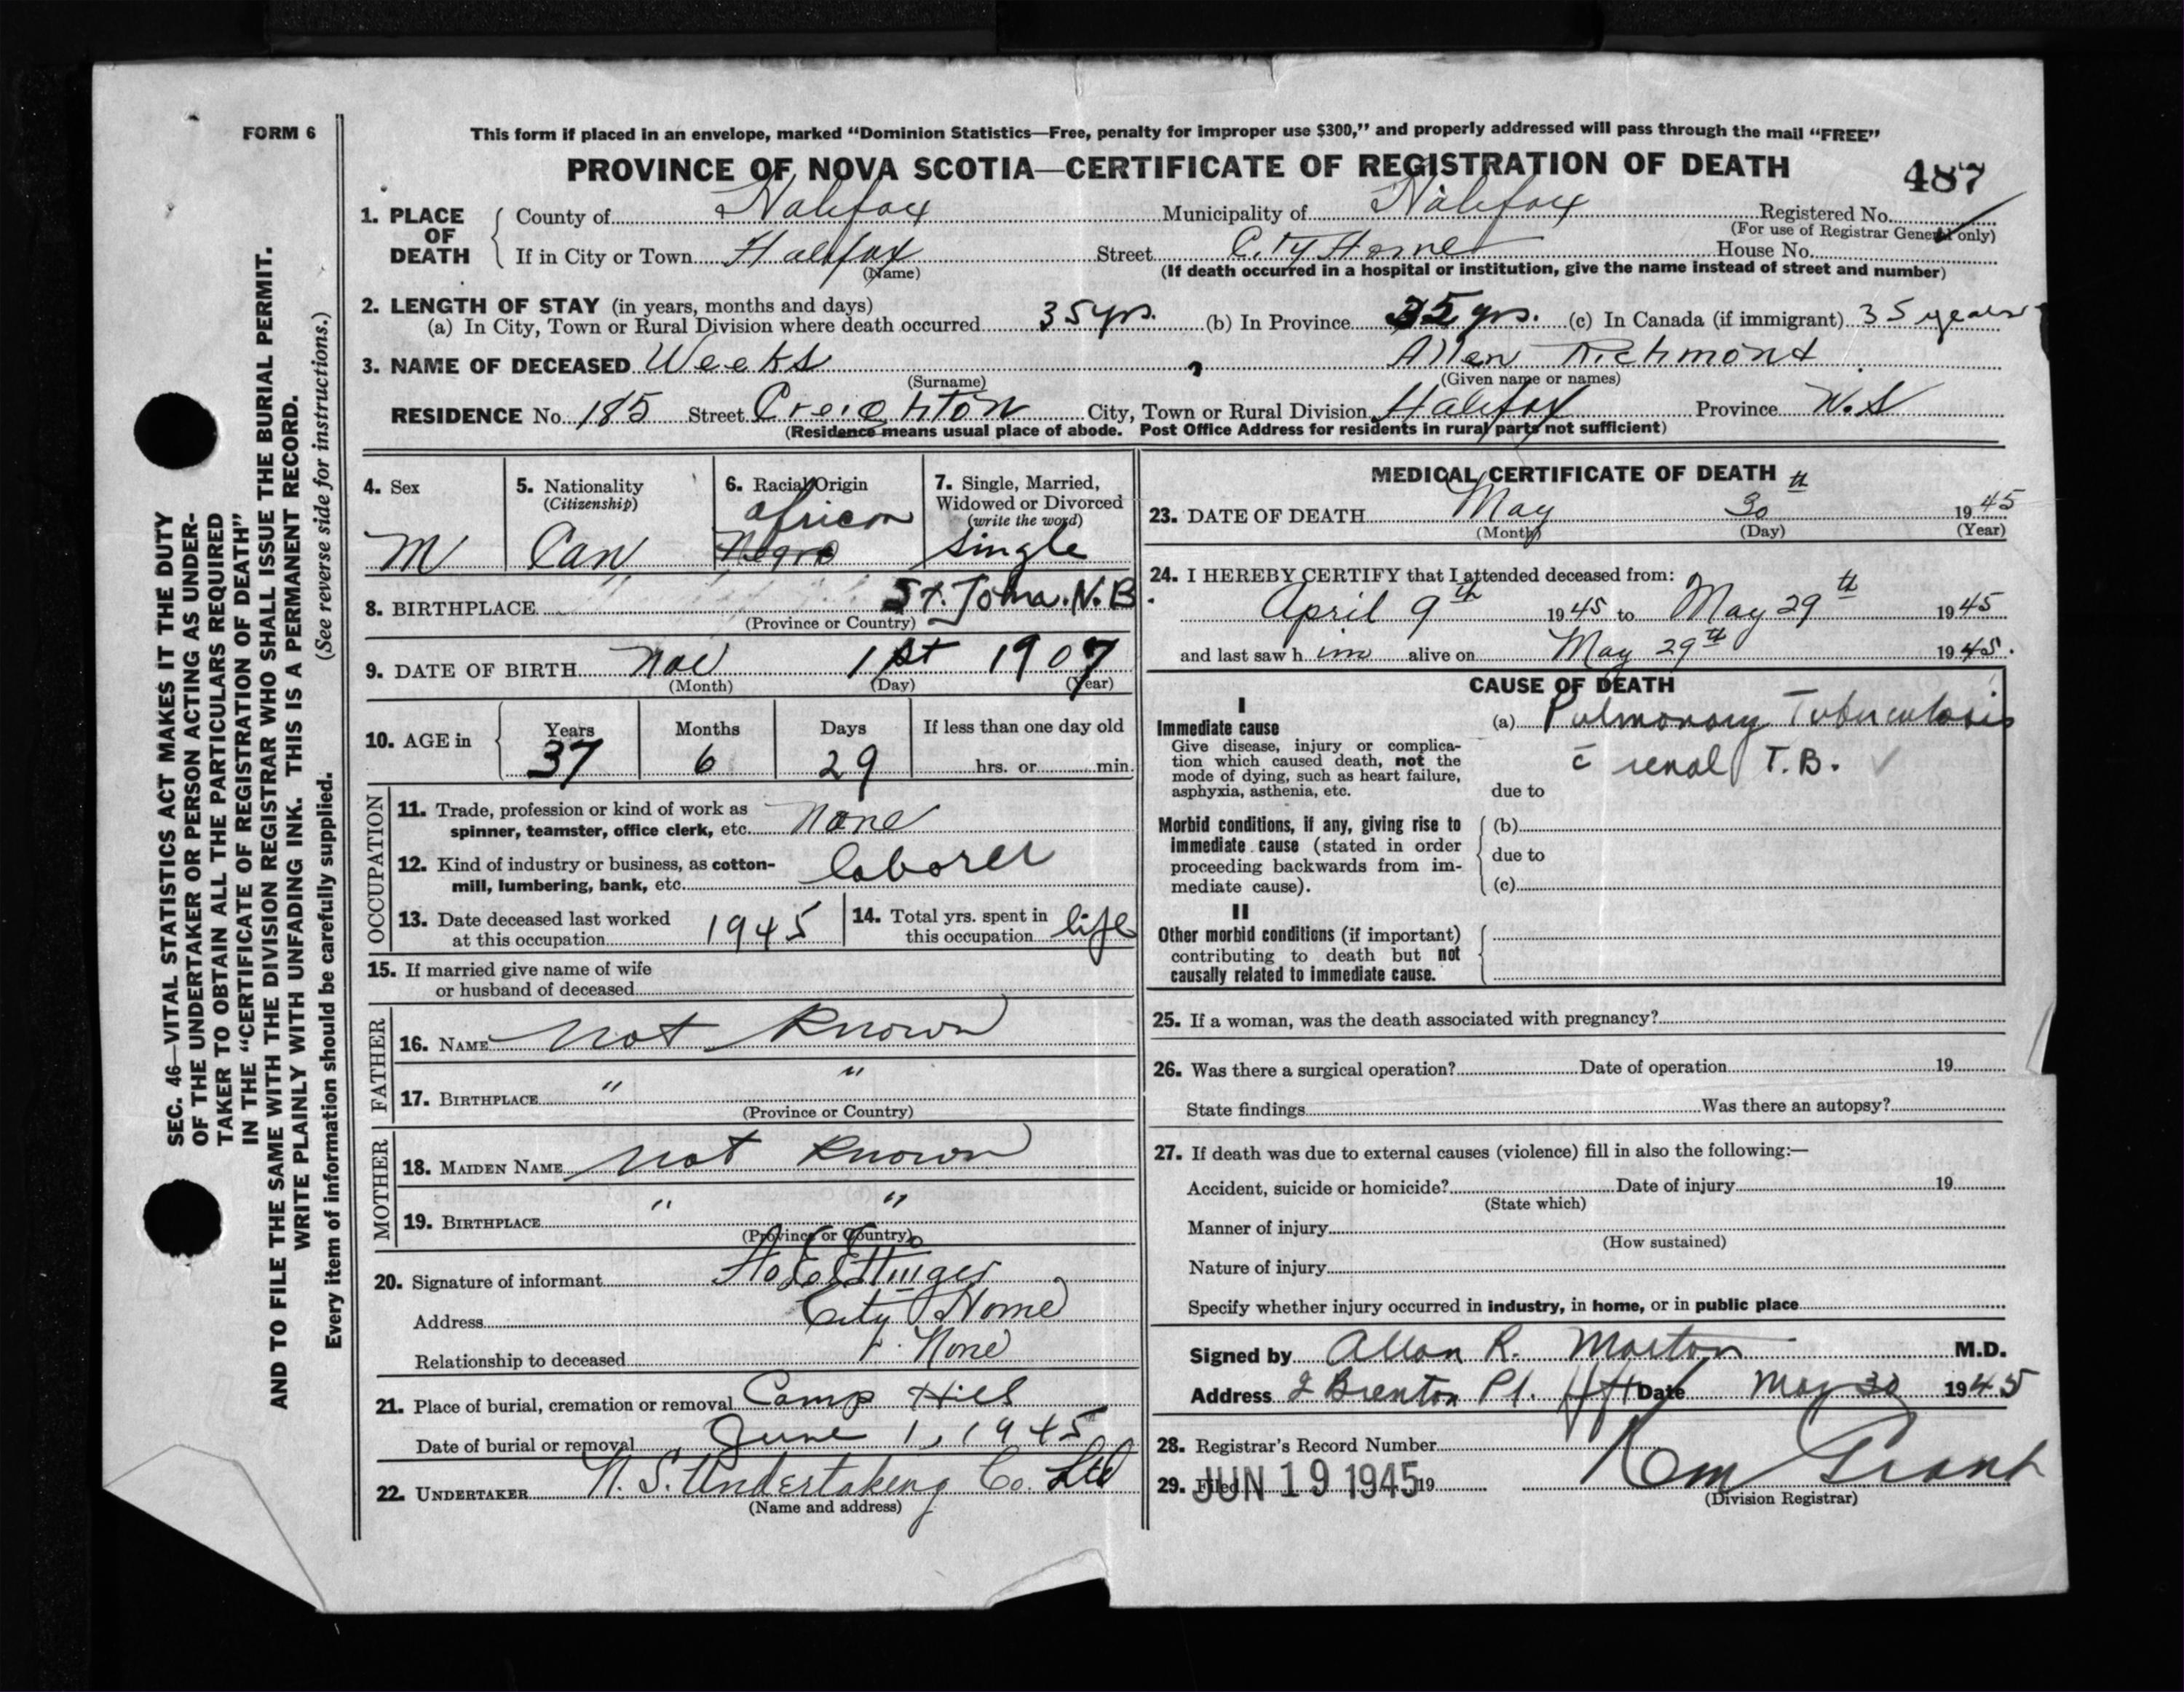 FORM 6
This form if placed in an envelope, marked "Dominion Statistics—Free, penalty for improper use $300," and properly addressed will pass through the mail "FREE"
PROVINCE OF NOVA SCOTIA—CERTIFICATE OF REGISTRATION OF DEATH
487
1. PLACE OF DEATH
County of Halifax Municipality of Halifax Registered No.
(For use of Registrar General only)
If in City or Town Halifax Street City Home House No.
(Name) (If death occurred in a hospital or institution, give the name instead of street and number)
2. LENGTH OF STAY (in years, months and days)
(a) In City, Town or Rural Division where death occurred 35 yrs. (b) In Province 35 yrs. (c) In Canada (if immigrant) 35 years
3. NAME OF DECEASED Weeks , Allen Richmont
(Surname) (Given name or names)
RESIDENCE No. 185 Street Creighton City, Town or Rural Division Halifax Province N.S
(Residence means usual place of abode. Post Office Address for residents in rural parts not sufficient)
4. Sex M
5. Nationality (Citizenship) Can
6. Racial Origin African Negro
7. Single, Married, Widowed or Divorced (write the word) Single
8. BIRTHPLACE St. John. N.B.
(Province or Country)
9. DATE OF BIRTH Nov 1st 1907
(Month) (Day) (Year)
10. AGE in Years 37 Months 6 Days 29 If less than one day old hrs. or min.
OCCUPATION
11. Trade, profession or kind of work as
spinner, teamster, office clerk, etc. None
12. Kind of industry or business, as cotton-
mill, lumbering, bank, etc. laborer
13. Date deceased last worked
at this occupation 1945
14. Total yrs. spent in
this occupation life
15. If married give name of wife
or husband of deceased
FATHER
16. NAME Not Known
17. BIRTHPLACE " "
(Province or Country)
MOTHER
18. MAIDEN NAME Not Known
19. BIRTHPLACE " "
(Province or Country)
20. Signature of informant
Address City Home
Relationship to deceased None
21. Place of burial, cremation or removal Camp Hill
Date of burial or removal June 1, 1945
22. UNDERTAKER N. S. Undertaking Co. Ltd
(Name and address)
MEDICAL CERTIFICATE OF DEATH
23. DATE OF DEATH May 30th 1945
(Month) (Day) (Year)
24. I HEREBY CERTIFY that I attended deceased from:
April 9th 1945 to May 29th 1945
and last saw him alive on May 29th 1945.
CAUSE OF DEATH
I
Immediate cause
Give disease, injury or complica-
tion which caused death, not the
mode of dying, such as heart failure,
asphyxia, asthenia, etc.
(a) Pulmonary Tuberculosis
c̄ renal T.B. ✓
due to
Morbid conditions, if any, giving rise to
immediate cause (stated in order
proceeding backwards from im-
mediate cause).
(b)
due to
(c)
II
Other morbid conditions (if important)
contributing to death but not
causally related to immediate cause.
25. If a woman, was the death associated with pregnancy?
26. Was there a surgical operation? Date of operation 19
State findings Was there an autopsy?
27. If death was due to external causes (violence) fill in also the following:—
Accident, suicide or homicide? Date of injury 19
(State which)
Manner of injury
(How sustained)
Nature of injury
Specify whether injury occurred in industry, in home, or in public place
Signed by Allan R. Morton M.D.
Address 2 Brenton Pl. Hfx Date May 30 1945
28. Registrar's Record Number
29. Filed JUN 19 1945 19
(Division Registrar)
SEC. 46—VITAL STATISTICS ACT MAKES IT THE DUTY
OF THE UNDERTAKER OR PERSON ACTING AS UNDER-
TAKER TO OBTAIN ALL THE PARTICULARS REQUIRED
IN THE "CERTIFICATE OF REGISTRATION OF DEATH"
AND TO FILE THE SAME WITH THE DIVISION REGISTRAR WHO SHALL ISSUE THE BURIAL PERMIT.
WRITE PLAINLY WITH UNFADING INK. THIS IS A PERMANENT RECORD.
Every item of information should be carefully supplied. (See reverse side for instructions.)